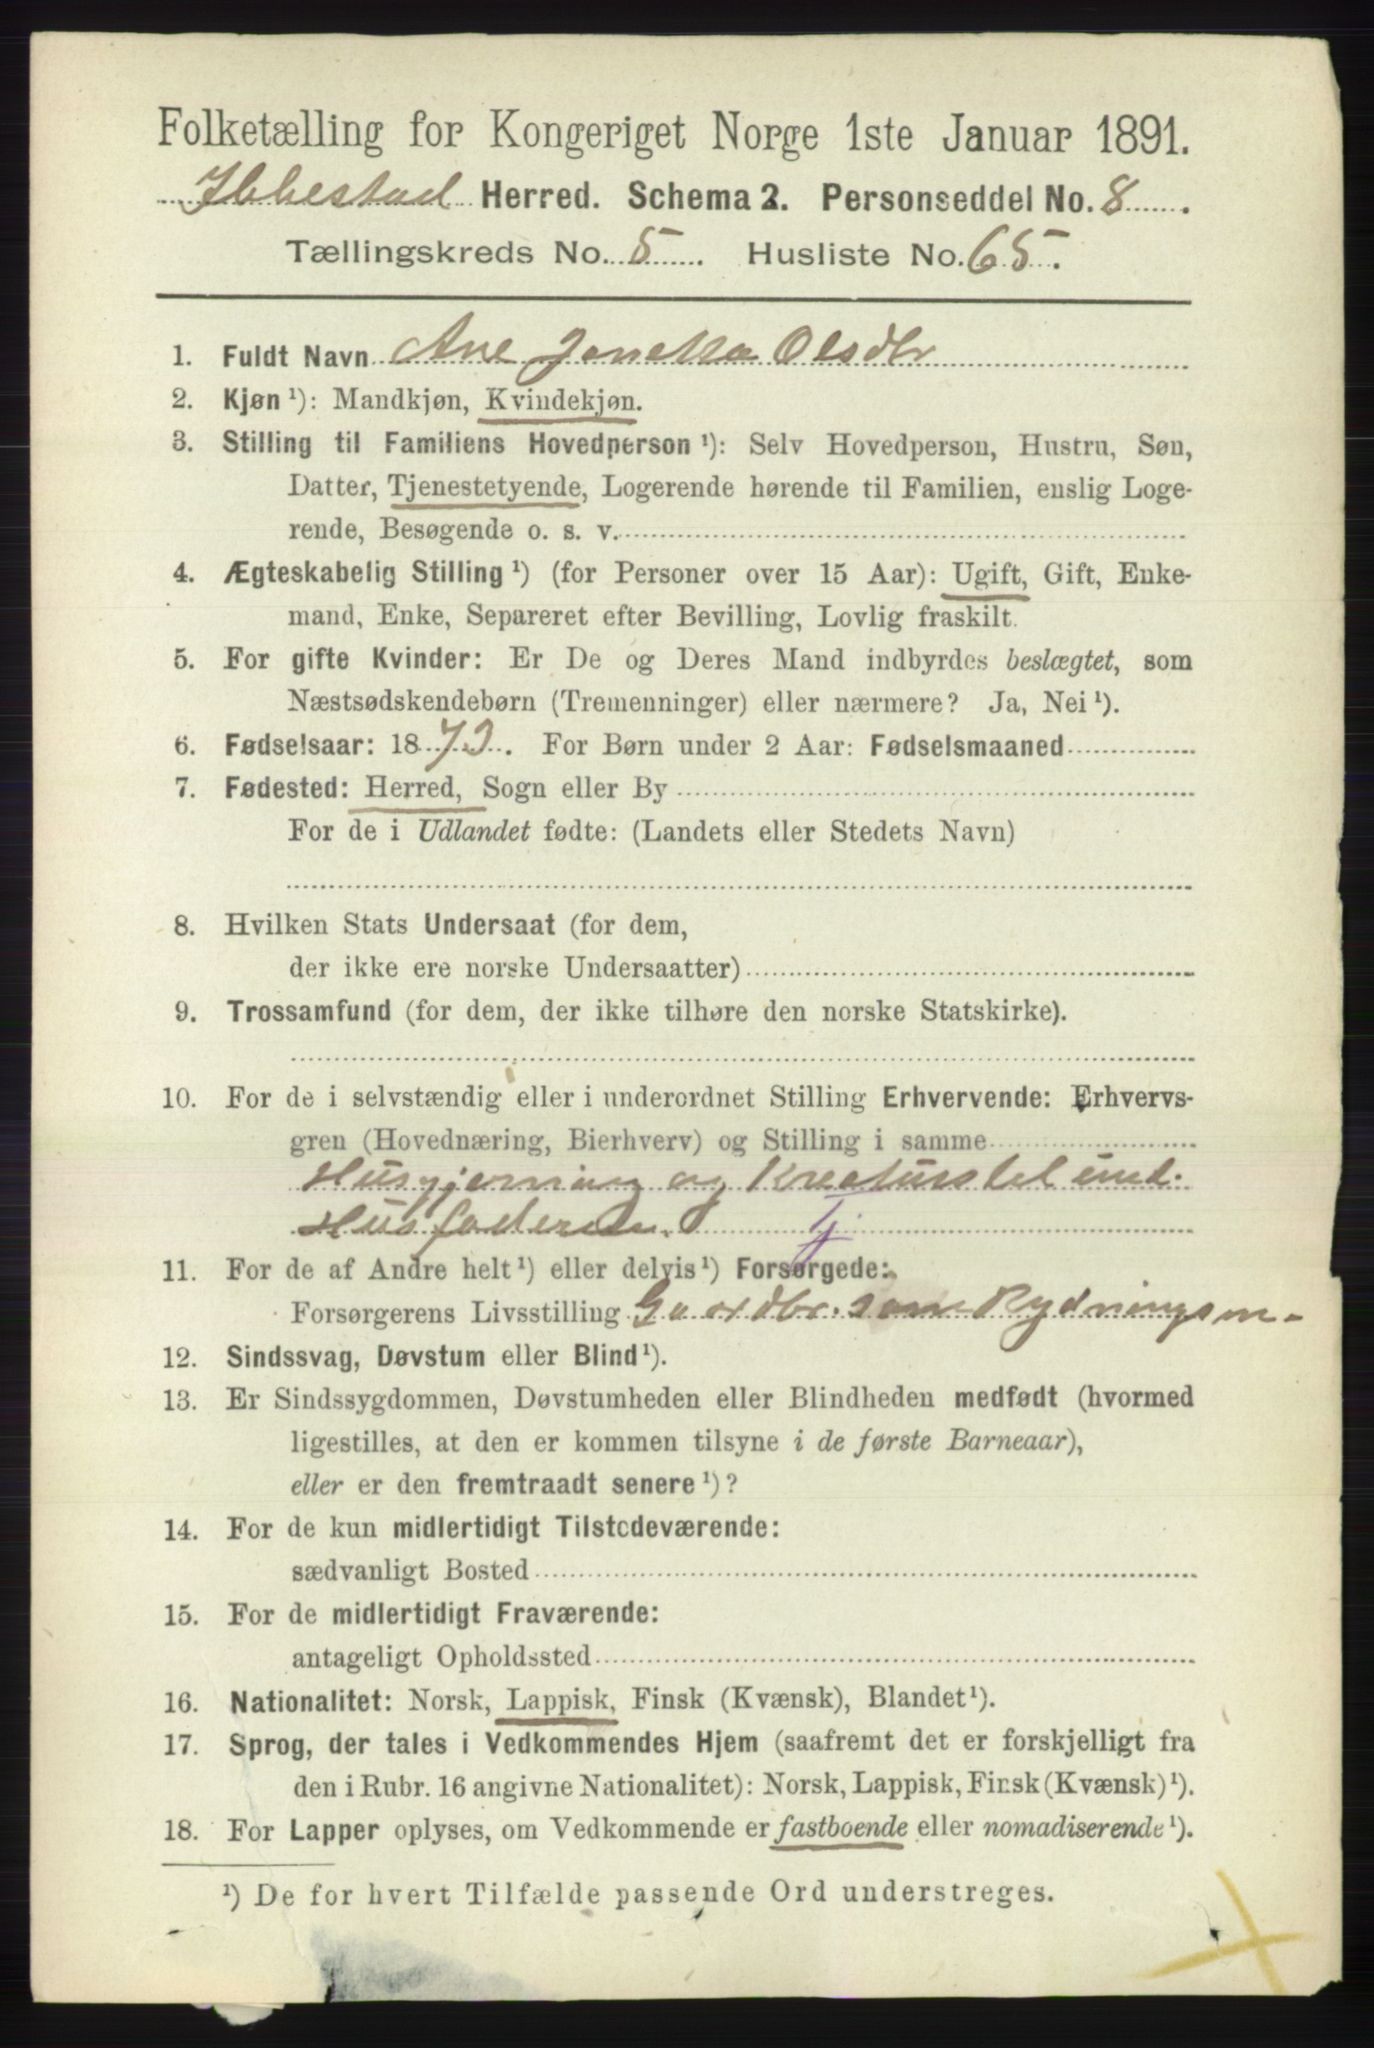 Folketælling for Kongeriget Norge 1ste Januar 1891.
Ibbestad Herred. Schema 2. Personseddel No. 8.
Tællingskreds No. 5. Husliste No. 65.
1. Fuldt Navn Ane Olsdtr
2. Kjøn ¹): Mandkjøn, Kvindekjøn.
3. Stilling til Familiens Hovedperson ¹): Selv Hovedperson, Hustru, Søn,
Datter, Tjenestetyende, Logerende hørende til Familien, enslig Loge-
rende, Besøgende o. s. v.
4. Ægteskabelig Stilling ¹) (for Personer over 15 Aar): Ugift, Gift, Enke-
mand, Enke, Separeret efter Bevilling, Lovlig fraskilt.
5. For gifte Kvinder: Er De og Deres Mand indbyrdes beslægtet, som
Næstsødskendebørn (Tremenninger) eller nærmere? Ja, Nei ¹).
6. Fødselsaar: 1873. For Børn under 2 Aar: Fødselsmaaned
7. Fødested: Herred, Sogn eller By
For de i Udlandet fødte: (Landets eller Stedets Navn)
8. Hvilken Stats Undersaat (for dem,
der ikke ere norske Undersaatter)
9. Trossamfund (for dem, der ikke tilhøre den norske Statskirke).
10. For de i selvstændig eller i underordnet Stilling Erhvervende: Erhvervs-
gren (Hovednæring, Bierhverv) og Stilling i samme
Husgjerning og Kreaturstel
Husfaderen. Tj
11. For de af Andre helt ¹) eller delvis ¹) Forsørgede:
Forsørgerens Livsstilling Gaardbr. som Rydningsm-
12. Sindssvag, Døvstum eller Blind ¹).
13. Er Sindssygdommen, Døvstumheden eller Blindheden medfødt (hvormed
ligestilles, at den er kommen tilsyne i de første Barneaar),
eller er den fremtraadt senere ¹)?
14. For de kun midlertidigt Tilstedeværende:
sædvanligt Bosted
15. For de midlertidigt Fraværende:
antageligt Opholdssted
16. Nationalitet: Norsk, Lappisk, Finsk (Kvænsk), Blandet ¹).
17. Sprog, der tales i Vedkommendes Hjem (saafremt det er forskjelligt fra
den i Rubr. 16 angivne Nationalitet): Norsk, Lappisk, Finsk (Kvænsk) ¹).
18. For Lapper oplyses, om Vedkommende er fastboende eller nomadiserende ¹).
¹) De for hvert Tilfælde passende Ord understreges.